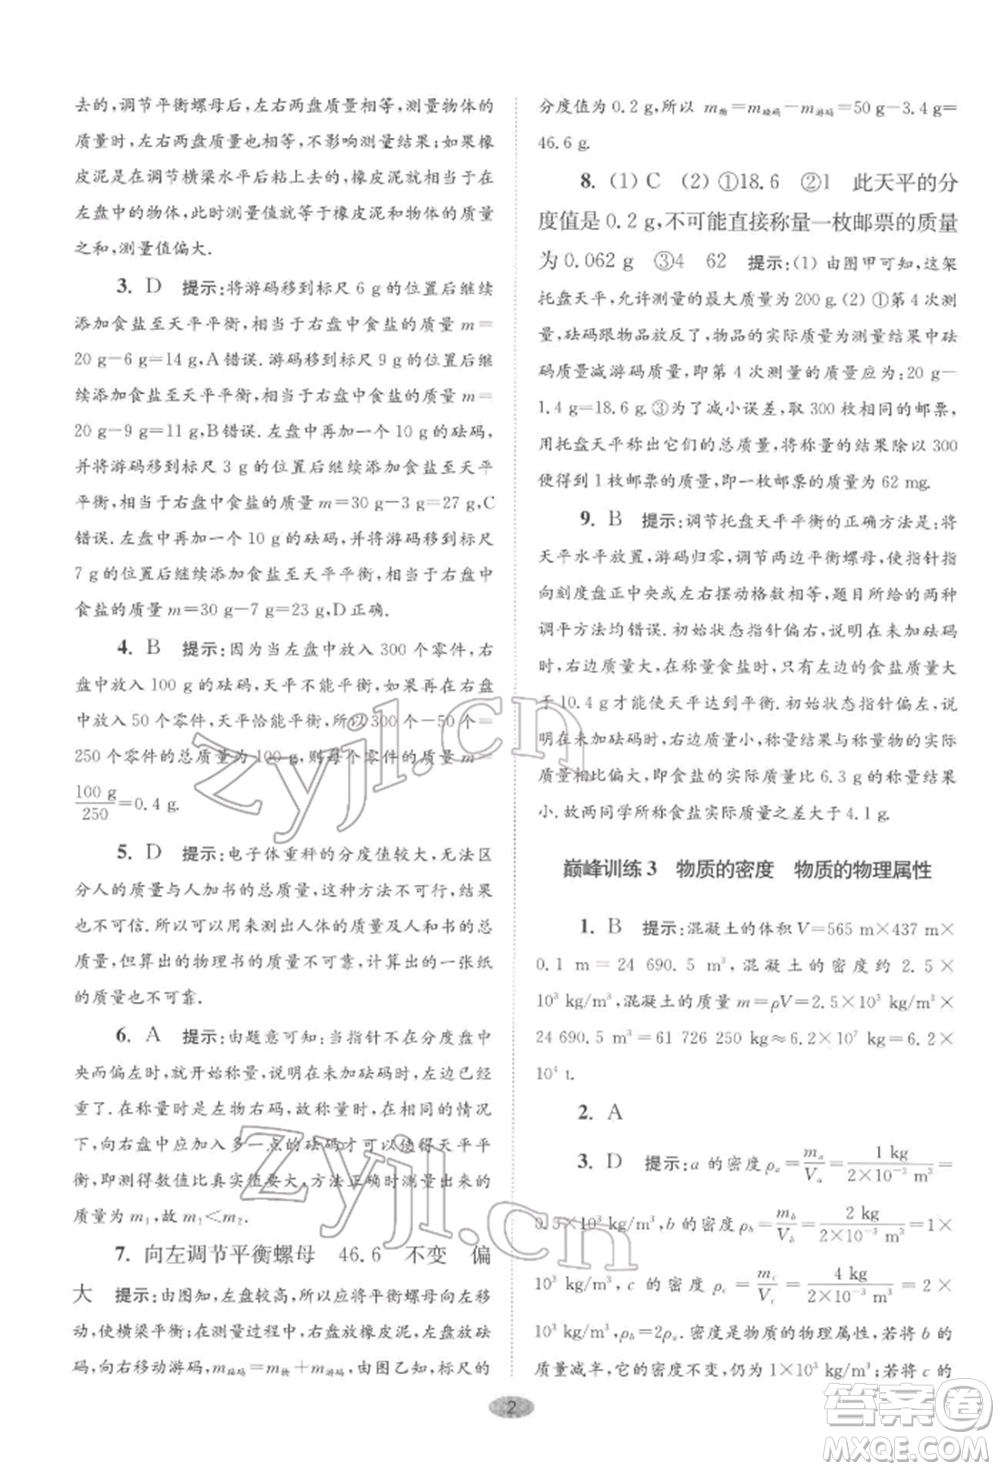 去的,调节平衡螺母后,左右两盘质量相等,测量物体的
质量时,右盘的质量也相等,不影响测量结果.如果是橡
皮泥在调节横梁水平后粘上去的,相当于橡皮泥也放在
左盘中的物体,此时测量值等于橡皮泥和物体的质量
之和,测量值偏大.
3. D 提示:将游码移到标尺 6 g 的位置后继续
添加食盐至天平平衡,相当于右盘中食盐的质量 m=
20 g-6 g=14 g,A错误.游码移到标尺 9 g 的位置后继
续添加食盐至天平平衡,相当于右盘中食盐的质量 m=
20 g-9 g=11 g,B错误.左盘中再加一个 10 g 的砝码,
并将游码移到标尺 3 g 的位置后继续添加食盐至天平
平衡,相当于右盘中食盐的质量 m=30 g-3 g=27 g,C
错误.左盘中再加一个 10 g 的砝码,并将游码移到标尺
7 g 的位置后继续添加食盐至天平平衡,相当于右盘中
食盐的质量 m=30 g-7 g=23 g,D正确.
4. B 提示:因为当左盘中放入 300 个零件,右
盘中放入 100 g 的砝码,天平不能平衡,如果再在右盘
中放入 50 个零件,天平恰能平衡,所以 300 个-50 个=
250 个零件的总质量为 100 g,则每个零件的质量 m=
100 g/250=0.4 g.
5. D 提示:电子体重秤的分度值较大,无法区
分人的质量与人加书的总质量,这种方法测量,结果
也不可信.所以可以用来测出人体的质量作为人的质
量,但算出的物理书的质量不可靠,计算出的一张纸
的质量也不可靠.
6. A 提示:由题意可知,当指针不在分度盘中
央而偏左时,就开始称量,说明在未加砝码时,左边已经
重了.在称量时是左物右码,故称量时,在相同的情况
下,向右盘中应加入多一点的砝码才可以使得天平平
衡,即测量值比真实值要大些,方法正确时测量的物体
质量为 m₁,故 m₁<m₂.
7. 向左调节平衡螺母 46.6 不变 偏
大 提示:由图知,左盘较高,所以应将平衡螺母向左移
动,使横梁平衡;在测量过程中,右盘放橡皮泥,左盘放砝
码,向右移动游码,m砝码=m物+m游码,由图乙知,标尺的
分度值为 0.2 g,所以 m物=m砝码-m游码=50 g-3.4 g=
46.6 g.
8. (1) C (2) ①18.6 ②1 此天平的分
度值是 0.2 g,不可能直接称量一枚邮票的质量
为 0.062 g ③4 62 提示:(1) 由图甲可知,这架
托盘天平,允许测量的最大质量为 200 g.(2) ①第 4 次测
量,砝码跟物品放反了,物品的实际质量为测量结果中砝
码质量减游码质量,即第 4 次测量的质量应为 20 g-
1.4 g=18.6 g.③为了减小误差,取 300 枚相同的邮票,
用托盘天平称出它们的总质量,将称量的结果除以 300
便得到 1 枚邮票的质量,即一枚邮票的质量为 62 mg.
9. B 提示:调节托盘天平平衡的正确方法是:将
天平水平放置,游码归零,调节两边平衡螺母,使指针指
向刻度盘正中央或左右摆动格数相等,题目所述的两种
调平方法均错误.初始状态指针偏右,说明在未加砝码
时,右边质量大,在称量食盐时,只有左边的食盐质量大
于 10.4 g才能使天平达到平衡.初始状态指针偏左,说明
在未加砝码时,左边质量大,称量结果与称量物的实际质
量相比偏大,即食盐的实际质量比 6.3 g(称量结果)偏
小.故两同学所称食盐实际质量之差大于 4.1 g.
巅峰训练 3 物质的密度 物质的物理属性
1. B 提示:混凝土的体积 V=565 m×437 m×
0.1 m=24 690.5 m³,混凝土的密度约 2.5×
10³ kg/m³,混凝土的质量 m=ρV=2.5×10³ kg/m³×
24 690.5 m³=61 726 250 kg≈6.2×10⁷ kg=6.2×
10⁴ t.
2. A
3. D 提示:a 的密度 ρₐ=mₐ/Vₐ=1 kg/2×10⁻³ m³=
0.5×10³ kg/m³,b 的密度 ρb=mb/Vb=2 kg/2×10⁻³ m³=1×
10³ kg/m³,c 的密度 ρc=mc/Vc=4 kg/2×10⁻³ m³=2×
10³ kg/m³,ρb=2ρₐ.密度是物质的物理属性,若将 b 的
质量减半,它的密度不变,仍为 1×10³ kg/m³.若将 c 的
2
zyjl.cn
zyjl.cn
答案圈
MXQE.COM